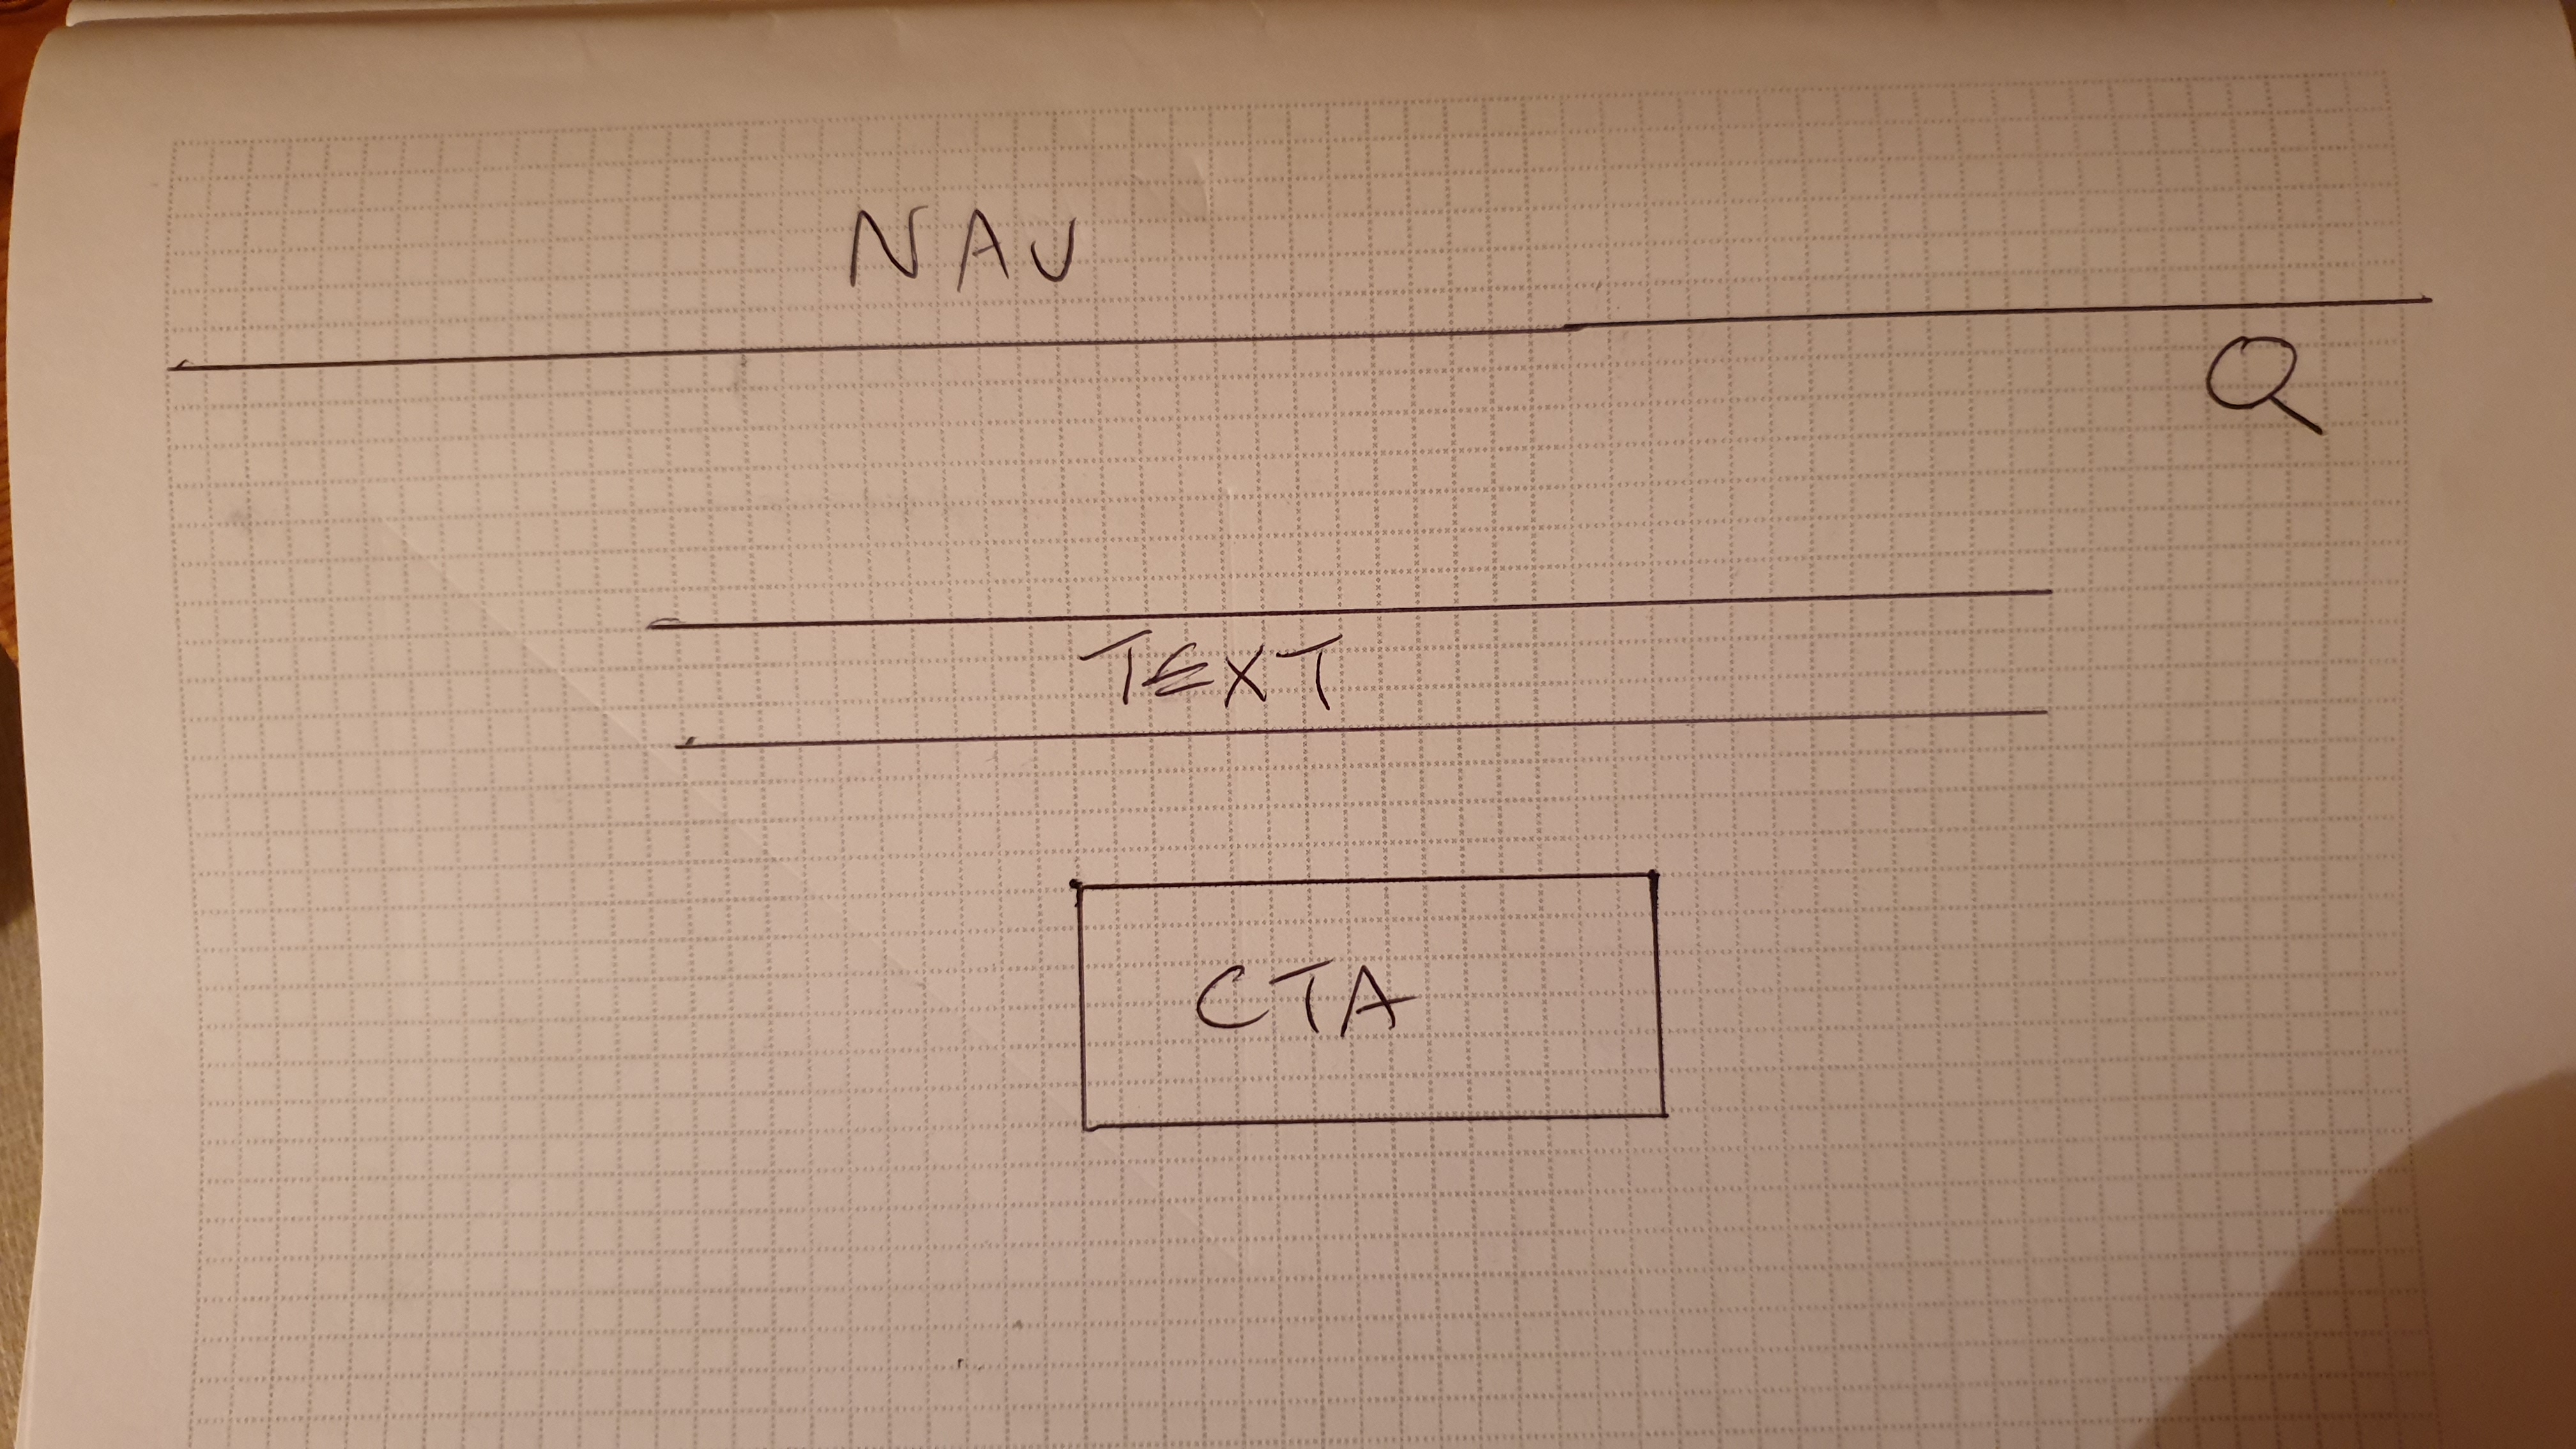 NAV
TEXT
CTA